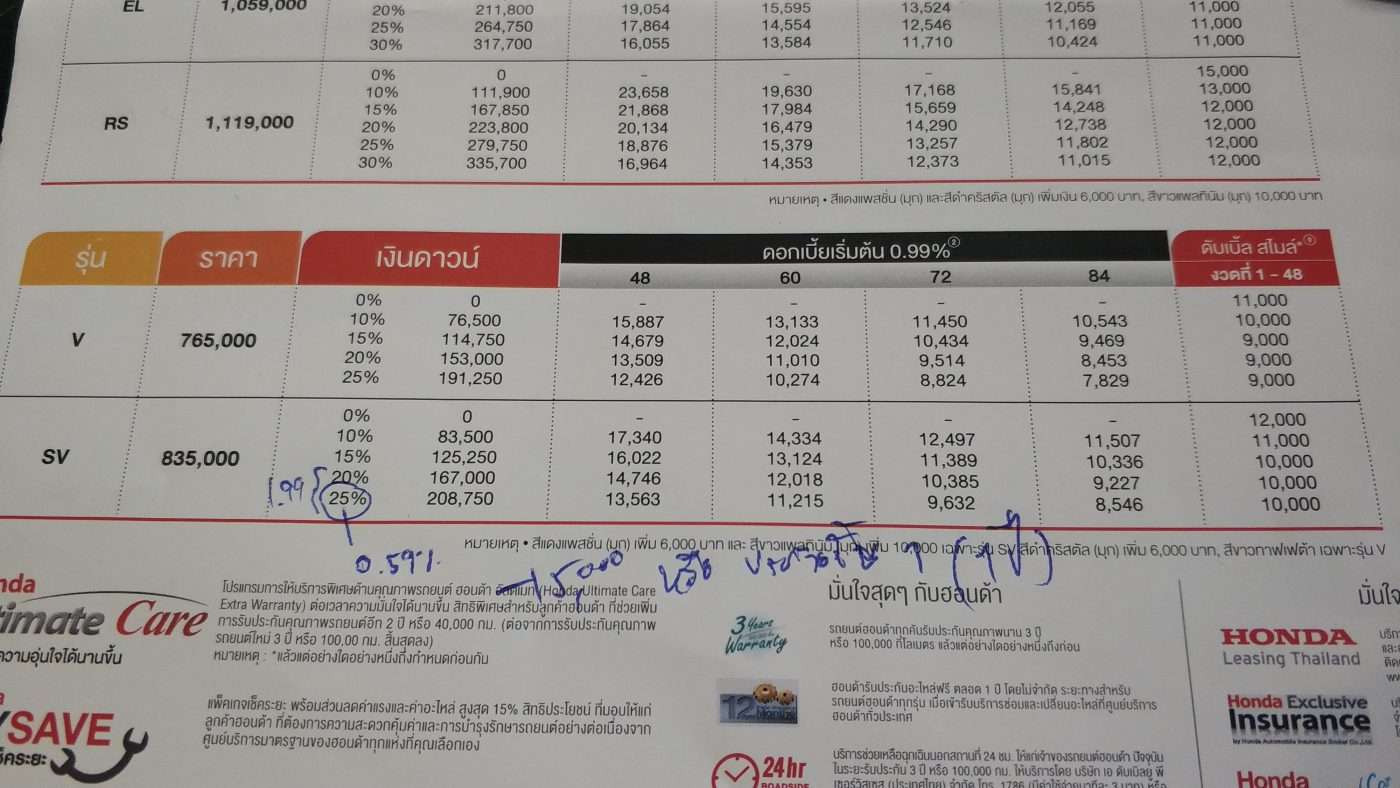 EL 1,059,000 20% 211,800 19,054 15,595 13,524 12,055 11,000
25% 264,750 17,864 14,554 12,546 11,169 11,000
30% 317,700 16,055 13,584 11,710 10,424 11,000
0% 0 - - - - 15,000
10% 111,900 23,658 19,630 17,168 15,841 13,000
15% 167,850 21,868 17,984 15,659 14,248 12,000
RS 1,119,000 20% 223,800 20,134 16,479 14,290 12,738 12,000
25% 279,750 18,876 15,379 13,257 11,802 12,000
30% 335,700 16,964 14,353 12,373 11,015 12,000
หมายเหตุ • สีแดงแพสชั่น (มุก) และสีดำคริสตัล (มุก) เพิ่มเงิน 6,000 บาท, สีขาวแพลทินัม (มุก) 10,000 บาท
รุ่น ราคา เงินดาวน์ ดอกเบี้ยเริ่มต้น 0.99%② ดับเบิ้ล สไมล์*⑨
48 60 72 84 งวดที่ 1 - 48
0% 0 - - - - 11,000
10% 76,500 15,887 13,133 11,450 10,543 10,000
V 765,000 15% 114,750 14,679 12,024 10,434 9,469 9,000
20% 153,000 13,509 11,010 9,514 8,453 9,000
25% 191,250 12,426 10,274 8,824 7,829 9,000
0% 0 - - - - 12,000
10% 83,500 17,340 14,334 12,497 11,507 11,000
SV 835,000 15% 125,250 16,022 13,124 11,389 10,336 10,000
20% 167,000 14,746 12,018 10,385 9,227 10,000
1.99 25% 208,750 13,563 11,215 9,632 8,546 10,000
หมายเหตุ • สีแดงแพสชั่น (มุก) เพิ่ม 6,000 บาท และ สีขาวแพลทินัม (มุก) เพิ่ม 10,000 เฉพาะรุ่น SV สีดำคริสตัล (มุก) เพิ่ม 6,000 บาท, สีขาวทาฟเฟต้า เฉพาะรุ่น V
0.59% 15,000 หรือ ประกันชั้น 1 (1 ปี)
nda
timate Care
ความอุ่นใจได้นานขึ้น
โปรแกรมการให้บริการพิเศษด้านคุณภาพรถยนต์ ฮอนด้า อัลติเมท (Honda Ultimate Care
Extra Warranty) ต่อเวลาความมั่นใจได้นานขึ้น สิทธิพิเศษสำหรับลูกค้าฮอนด้า ที่ช่วยเพิ่ม
การรับประกันคุณภาพรถยนต์อีก 2 ปี หรือ 40,000 กม. (ต่อจากการรับประกันคุณภาพ
รถยนต์ใหม่ 3 ปี หรือ 100,00 กม. สิ้นสุดลง)
หมายเหตุ : *แล้วแต่อย่างใดอย่างหนึ่งถึงกำหนดก่อนกัน
SAVE
ช็คระยะ
แพ็คเกจเช็คระยะ พร้อมส่วนลดค่าแรงและค่าอะไหล่ สูงสุด 15% สิทธิประโยชน์ ที่มอบให้แก่
ลูกค้าฮอนด้า ที่ต้องการความสะดวกคุ้มค่าและการบำรุงรักษารถยนต์อย่างต่อเนื่องจาก
ศูนย์บริการมาตรฐานของฮอนด้าทุกแห่งที่คุณเลือกเอง
มั่นใจสุดๆ กับฮอนด้า
3 Years
Warranty
รถยนต์ฮอนด้าทุกคันรับประกันคุณภาพนาน 3 ปี
หรือ 100,000 กิโลเมตร แล้วแต่อย่างใดอย่างหนึ่งถึงก่อน
12 Months
ฮอนด้ารับประกันอะไหล่ฟรี ตลอด 1 ปี โดยไม่จำกัด ระยะทางสำหรับ
รถยนต์ฮอนด้าทุกรุ่น เมื่อเข้ารับบริการซ่อมและเปลี่ยนอะไหล่ที่ศูนย์บริการ
ฮอนด้าทั่วประเทศ
24hr
ROADSIDE
บริการช่วยเหลือฉุกเฉินนอกสถานที่ 24 ชม. ให้แก่เจ้าของรถยนต์ฮอนด้า ปัจจุบัน
ในระยะรับประกัน 3 ปี หรือ 100,000 กม. ให้บริการโดย บริษัท เอ ดับเบิลยู พี
เซอร์วิสเซส (ประเทศไทย) จำกัด โทร. 1786 (มีค่าใช้จ่ายนาทีละ 3 บาท) หรือ
มั่นใ
HONDA
Leasing Thailand
Honda Exclusive
Insurance
by Honda Automobile Insurance Broker Co.,Ltd.
Honda